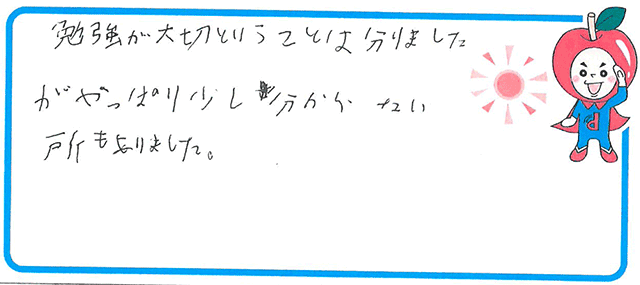 勉強が大切ということは分りました
がやっぱり少し分からない
所もありました。